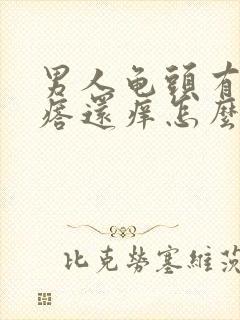 男人龟頭有
痞還痒怎麽
比克勞塞維茨